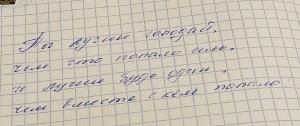 Ты лучше голодай,
чем что попало ешь,
и лучше будь один,
чем вместе с кем попало